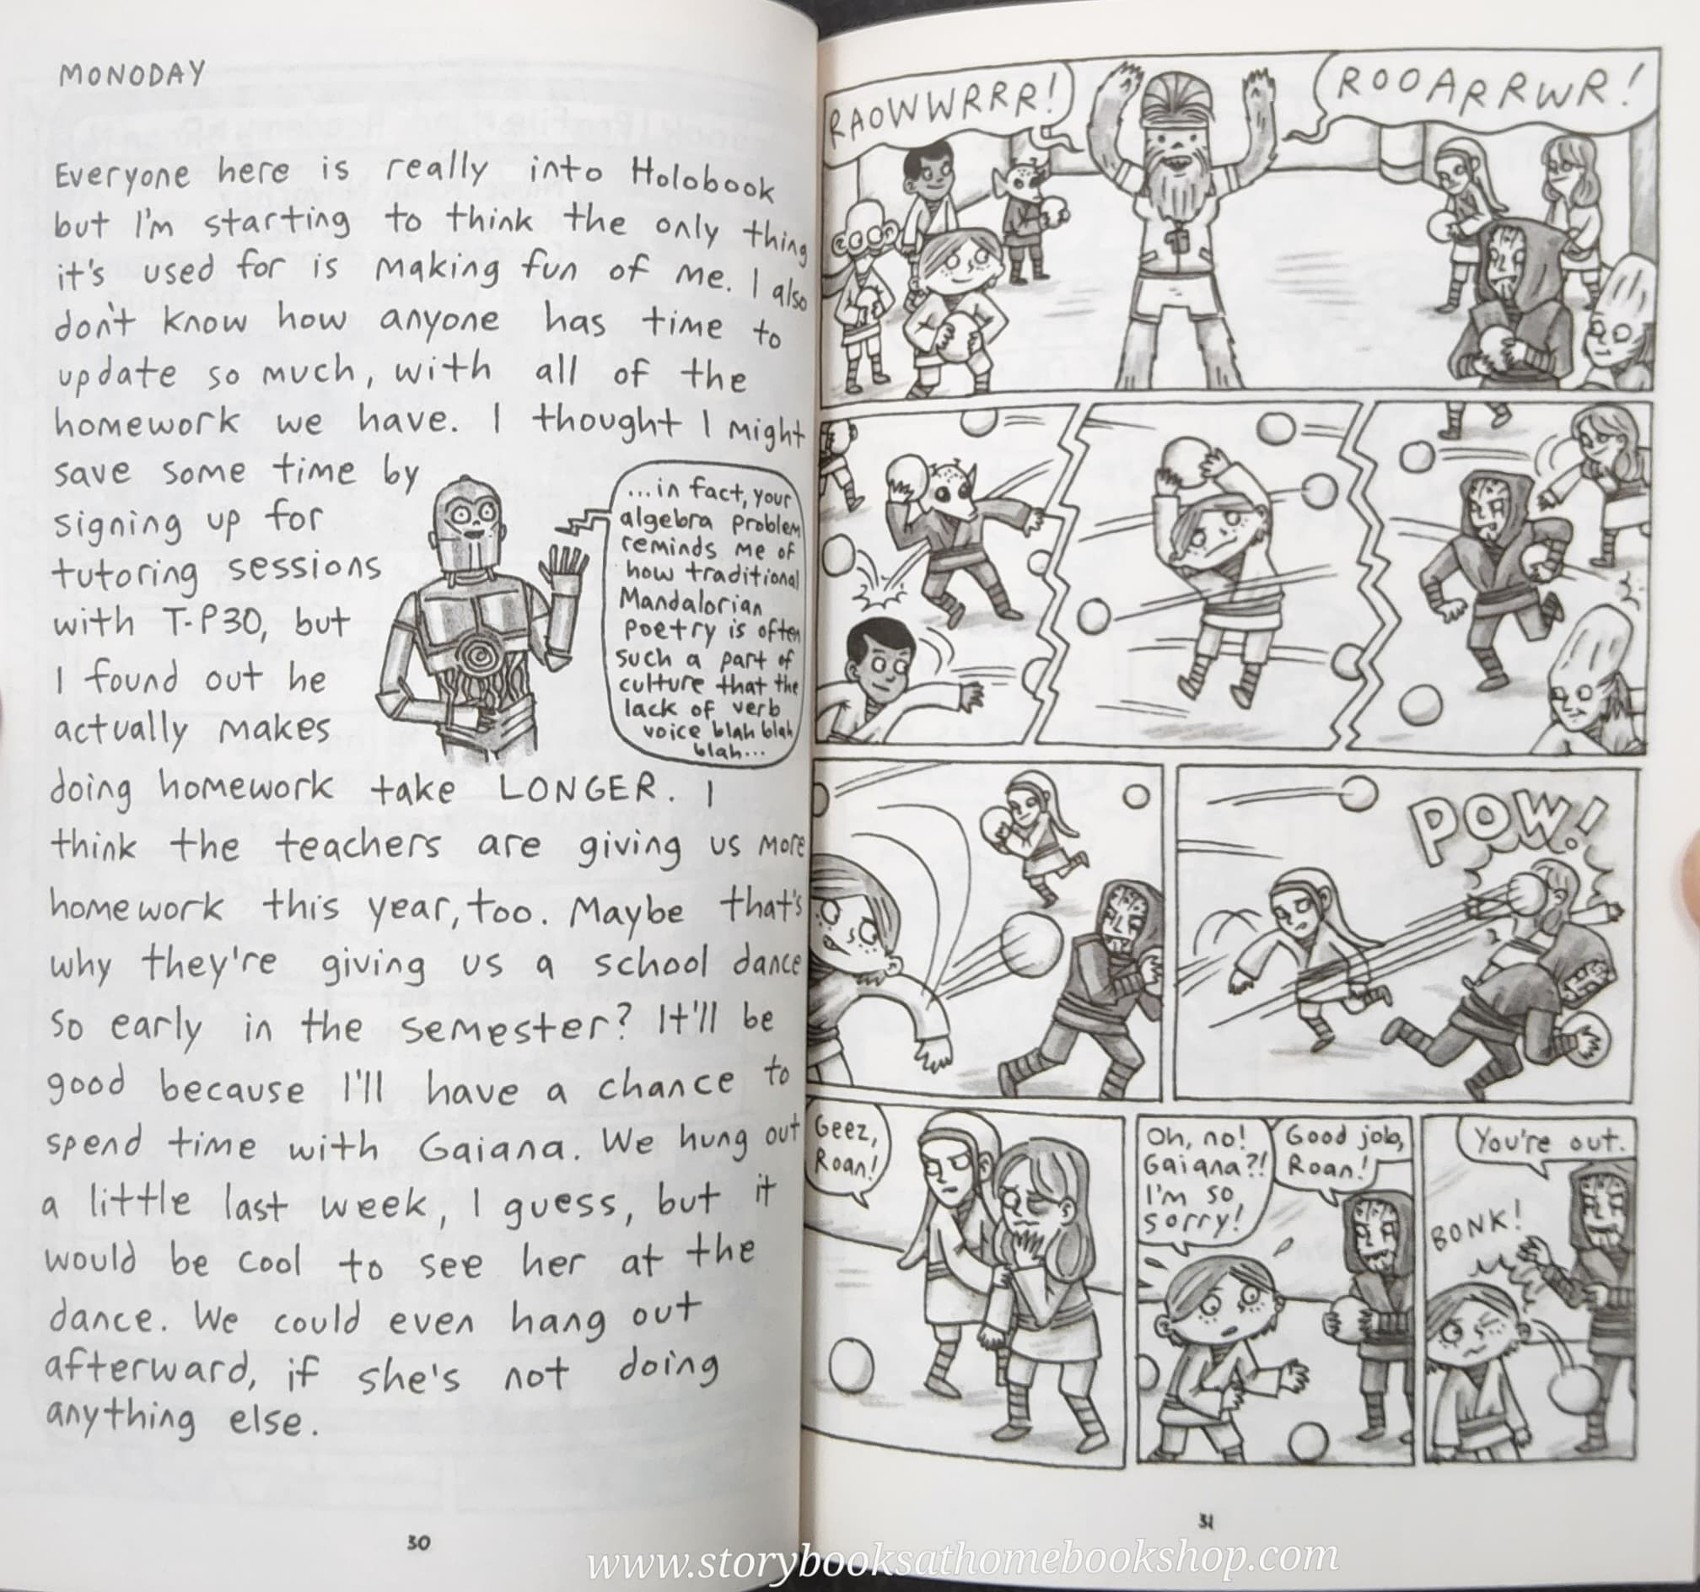 MONODAY
Everyone here is really into Holobook
but I'm starting to think the only thing
it's used for is making fun of me. I also
don't know how anyone has time to
update so much, with all of the
homework we have. I thought I might
save some time by
signing up for
tutoring sessions
with T-P30, but
I found out he
actually makes
...in fact, your
algebra problem
reminds me of
how traditional
Mandalorian
poetry is often
such a part of
culture that the
lack of verb
voice blah blah
blah...
doing homework take LONGER. I
think the teachers are giving us more
homework this year, too. Maybe that's
why they're giving us a school dance
so early in the semester? It'll be
good because I'll have a chance to
spend time with Gaiana. We hung out
a little last week, I guess, but it
would be cool to see her at the
dance. We could even hang out
afterward, if she's not doing
anything else.
30
RAOWWRRR!
ROOARRWR!
POW!
Geez,
Roan!
Oh, no!
Gaiana?!
I'm so
sorry!
Good job,
Roan!
You're out.
BONK!
31
www.storybooksathomebookshop.com